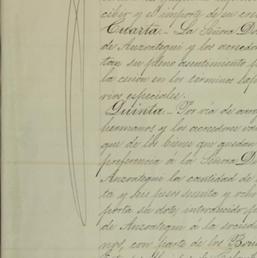 cibir y el importe de su cre
Cuarta.- La Señora Do
de Anzoategui y los acreedor
tan su pleno asentimiento p
la cesión en los terminos
rios especiales.
Quinta.- Por vía de
hermanos y los acreedores
que de los bienes que quedan
preferencia á la Señora D
Anzoategui la cantidad de
ta y seis pesos sesenta y ocho
porta su dote, introducido
de Anzoategui á la sociedad
con parte de los